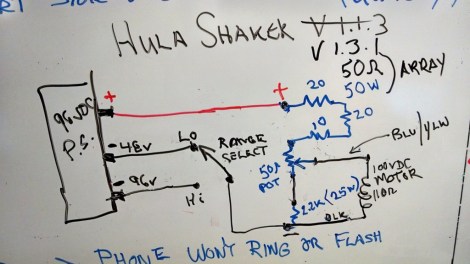 HULA SHAKER V 1.1.3
V 1.3.1
50Ω
50W
ARRAY
+
+
20
20
10
96VDC
P.S.
- 48V
LO
RANGE
SELECT
50Ω
POT
BLU/YLW
100VDC
MOTOR
110Ω
- 96V
Hi
2.2K (25W)
BLK
PHONE WON'T RING OR FLASH